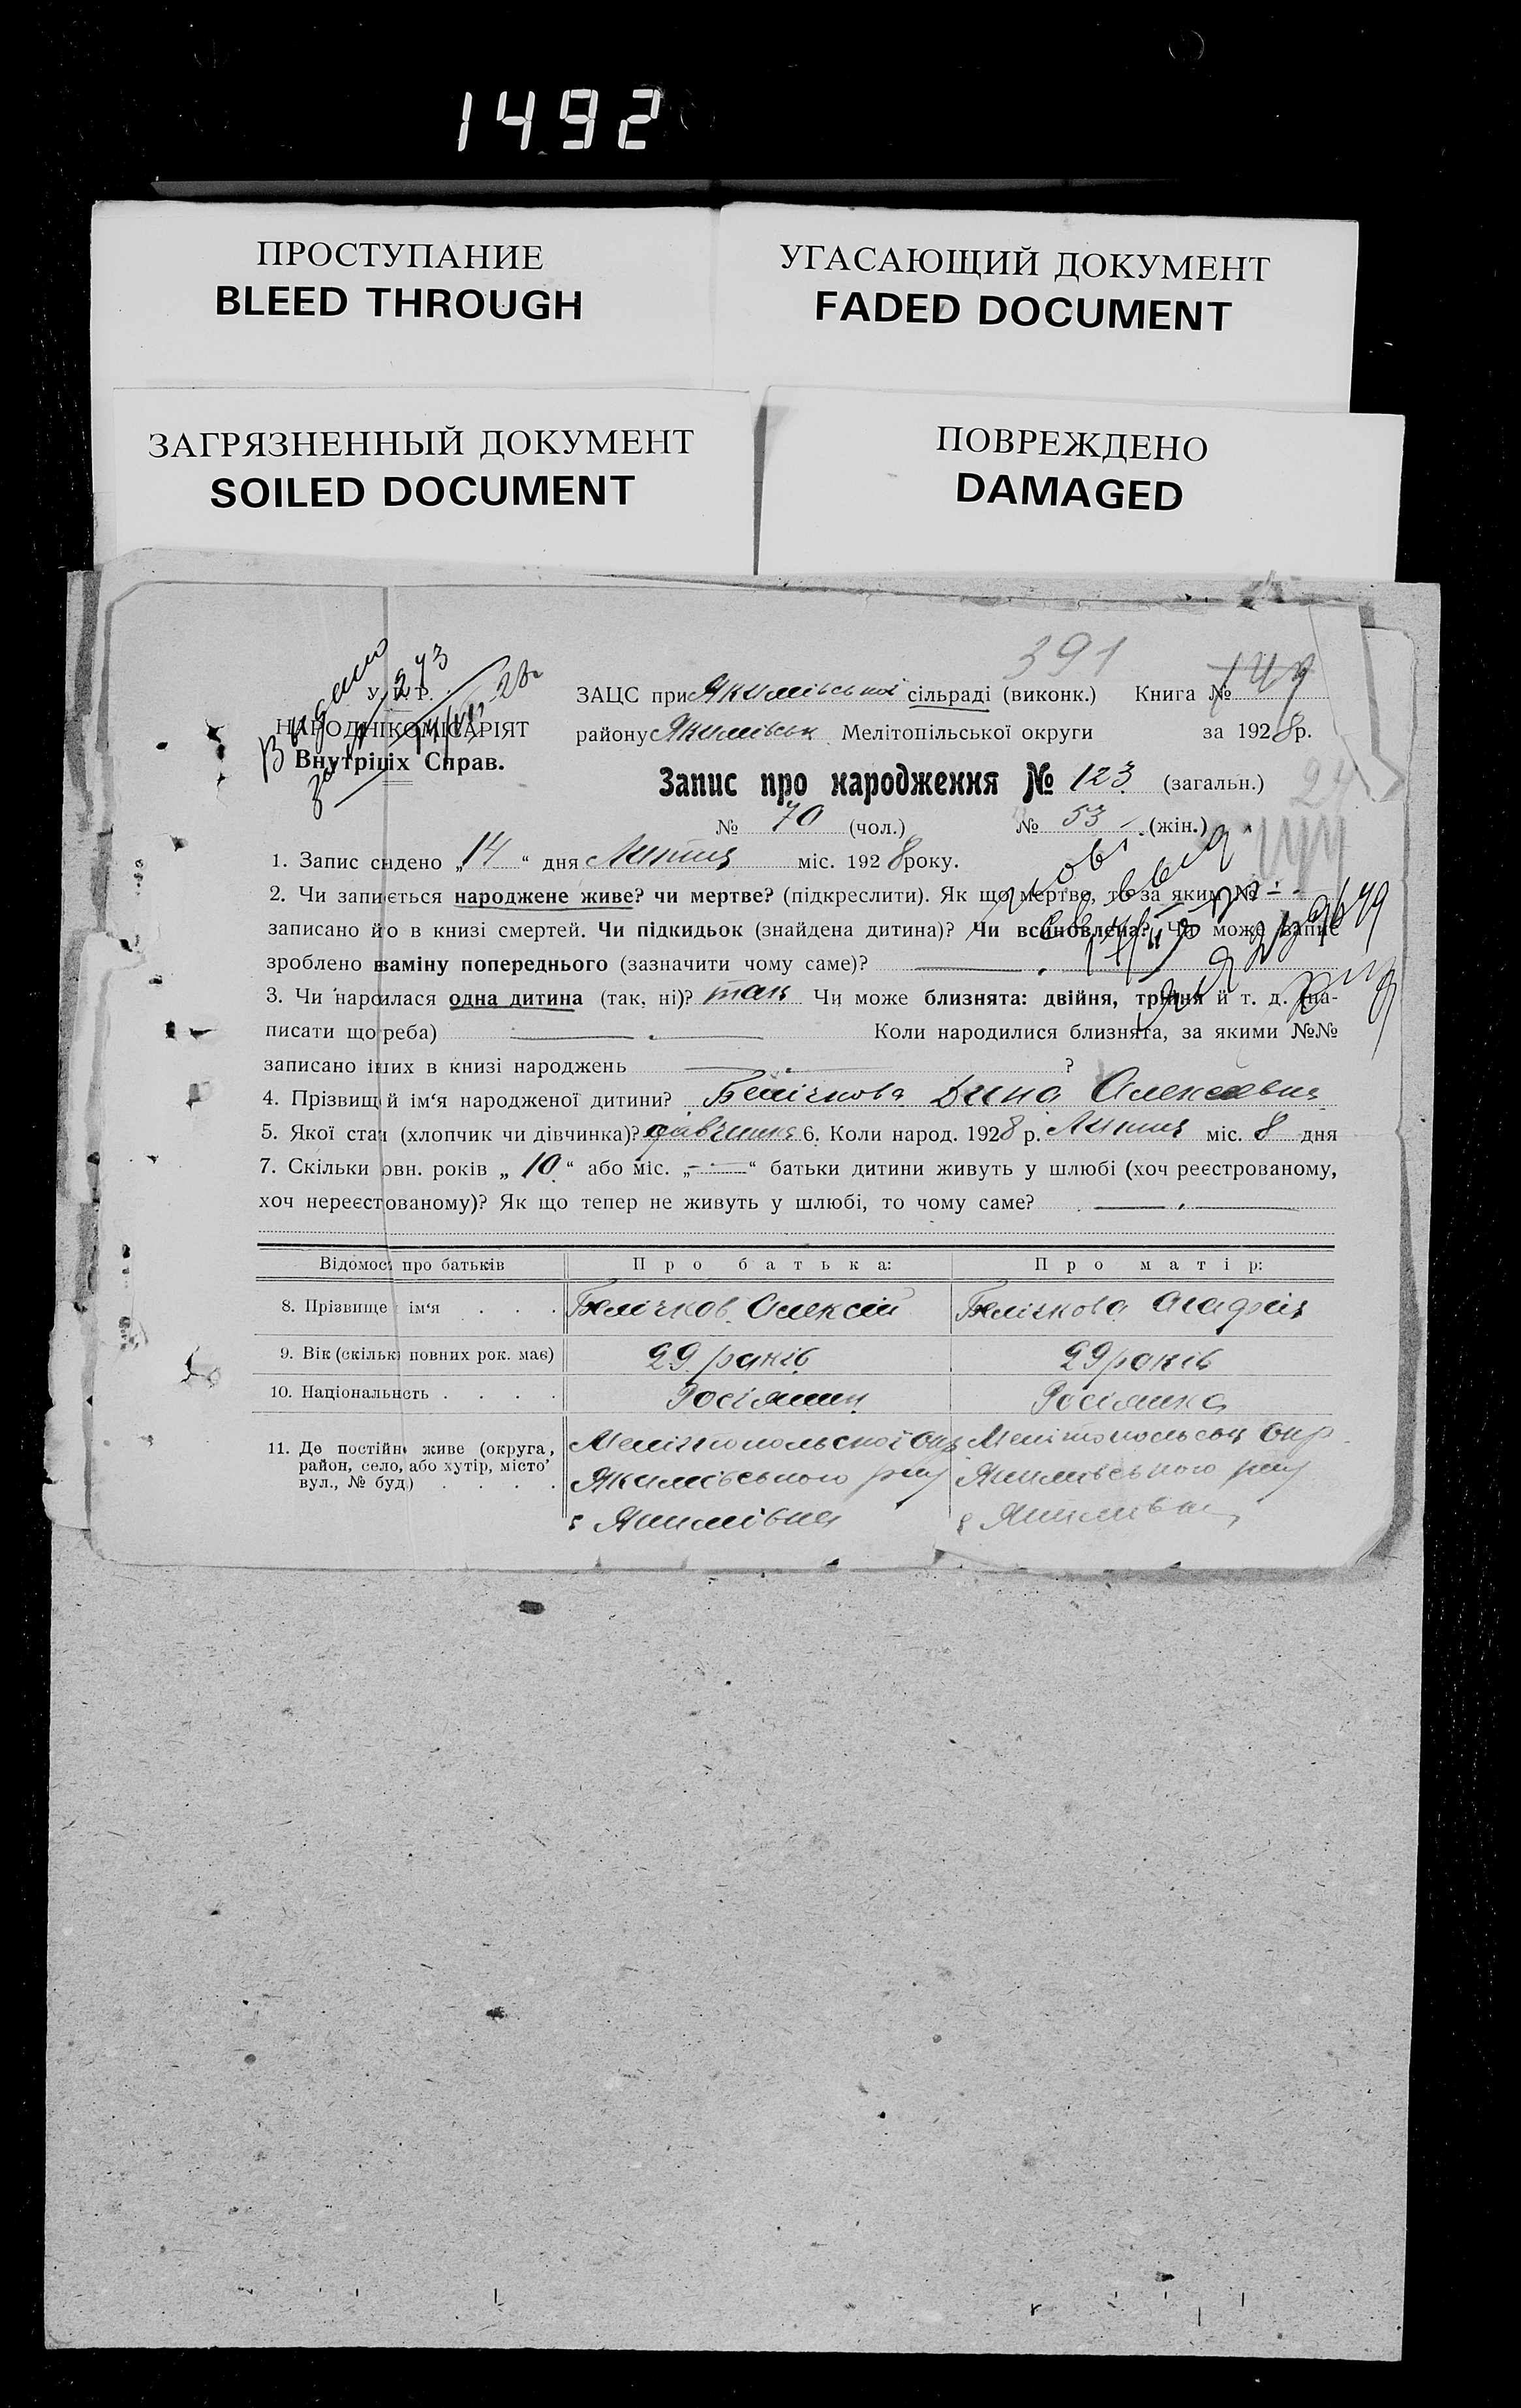 1492
ПРОСТУПАНИЕ
BLEED THROUGH
УГАСАЮЩИЙ ДОКУМЕНТ
FADED DOCUMENT
ЗАГРЯЗНЕННЫЙ ДОКУМЕНТ
SOILED DOCUMENT
ПОВРЕЖДЕНО
DAMAGED
391
Видано
243
НАРОДНІКОМІСАРІЯТ
Внутрішіх Справ.
ЗАЦС при Якимівської сільраді (виконк.) Книга № 149
району Якимівськ Мелітопільської округи за 1928 р.
Запис про народження № 123 (загальн.)
24
№ 70 (чол.) № 53 (жін.)
144
1. Запис сидено „14“ дня Липня міс. 1928 року.
2. Чи запиється народжене живе? чи мертве? (підкреслити). Як що мертве, то за яким №
записано йо в книзі смертей. Чи підкидьок (знайдена дитина)? Чи всиновлена? Чи може запис
зроблено взаміну попереднього (зазначити чому саме)?
3. Чи нароилася одна дитина (так, ні)? так Чи може близнята: двійня, трійня й т. д. (на-
писати що реба) Коли народилися близнята, за якими №№
записано інших в книзі народжень ?
4. Прізвищ й ім‘я народженої дитини? Белічкова Дина Алексеевна
5. Якої стач (хлопчик чи дівчинка)? дівчинка 6. Коли народ. 1928 р. Липня міс. 8 дня
7. Скільки овн. років „10“ або міс. „—“ батьки дитини живуть у шлюбі (хоч реєстрованому,
хоч нереєстованому)? Як що тепер не живуть у шлюбі, то чому саме?
Відомос про батьків Про батька: Про матір:
8. Прізвище ім‘я . . . Белічков Олексій Белічкова Агафія
9. Вік (скільк повних рок. має) 29 років 29 років
10. Національность . . . . Росіянин Росіянка
11. Де постійн живе (округа, район, село, або хутір, місто’ вул., № буд) . . . .
Мелітопольської Окр Мелітопольськ Окр.
Якимівського рну Якимівського рну
с Якимівка с Якимівка